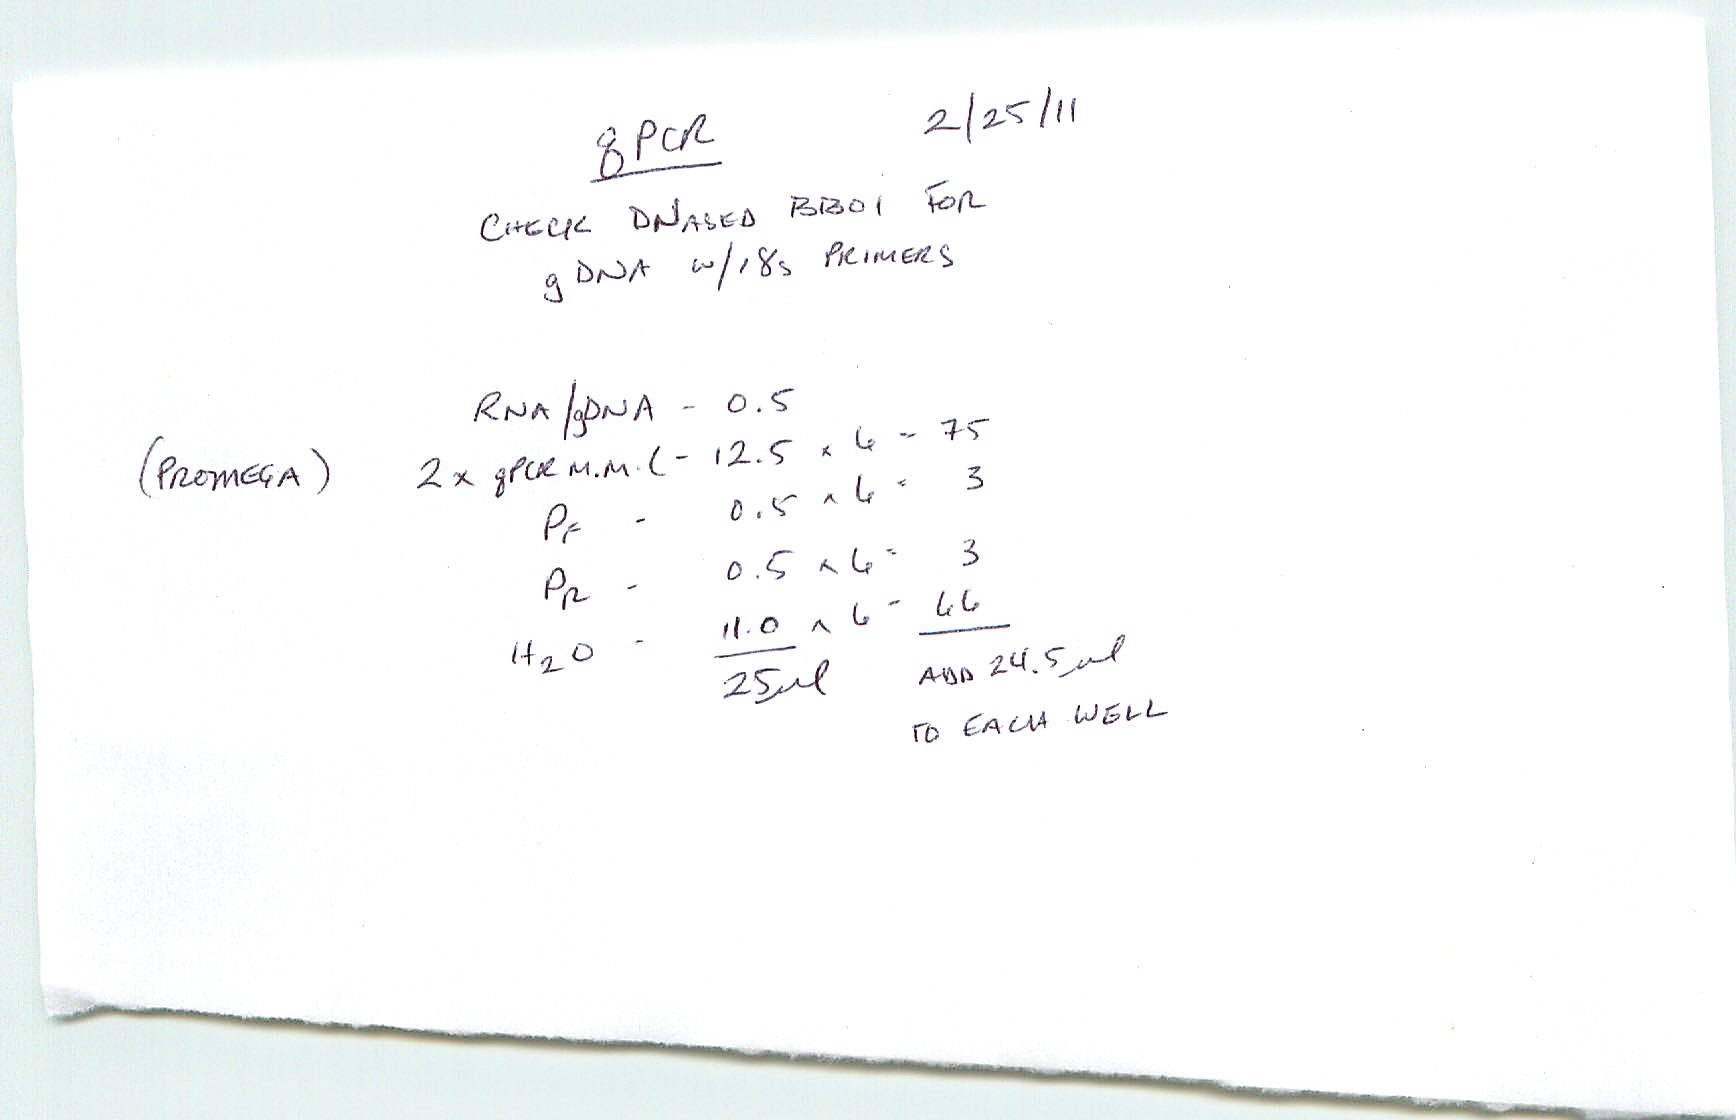 qPCR 2/25/11
CHECK DNASED BB01 FOR
gDNA w/18s PRIMERS
RNA/gDNA - 0.5
(PROMEGA) 2x qPCR M.M. (- 12.5 x 6 - 75
PF - 0.5 x 6 = 3
PR - 0.5 x 6 = 3
H2O - 11.0 x 6 - 66
25µl ADD 24.5µl
TO EACH WELL